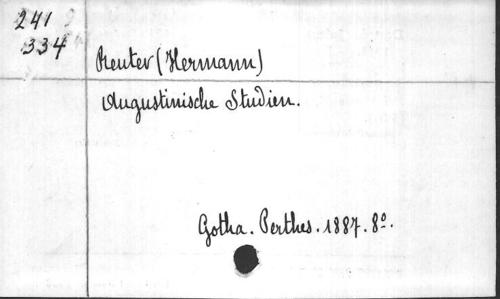 241
334
Reuter (Hermann)
Augustinische Studien.
Gotha. Perthes. 1887. 8º.